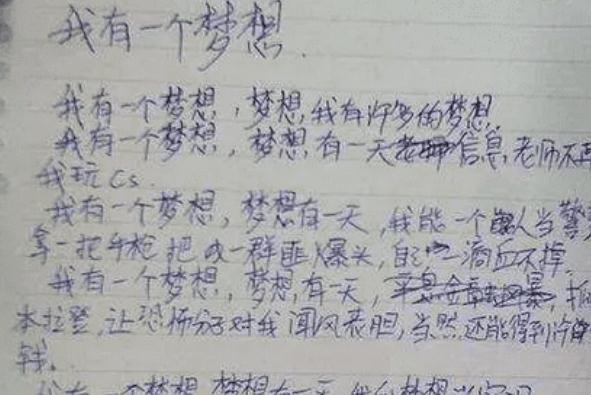 我有一个梦想.
我有一个梦想,梦想,我有许多的梦想,
我有一个梦想,梦想有一天信息老师不再
我玩CS.
我有一个梦想,梦想有一天,我能一个人当警
拿一把手枪把一群匪爆头,自己一滴血不掉.
我有一个梦想,梦想,有一天,
本拉登,让恐怖分子对我闻风丧胆,当然还能得到许
钱.
我有一个梦想,梦想有一天